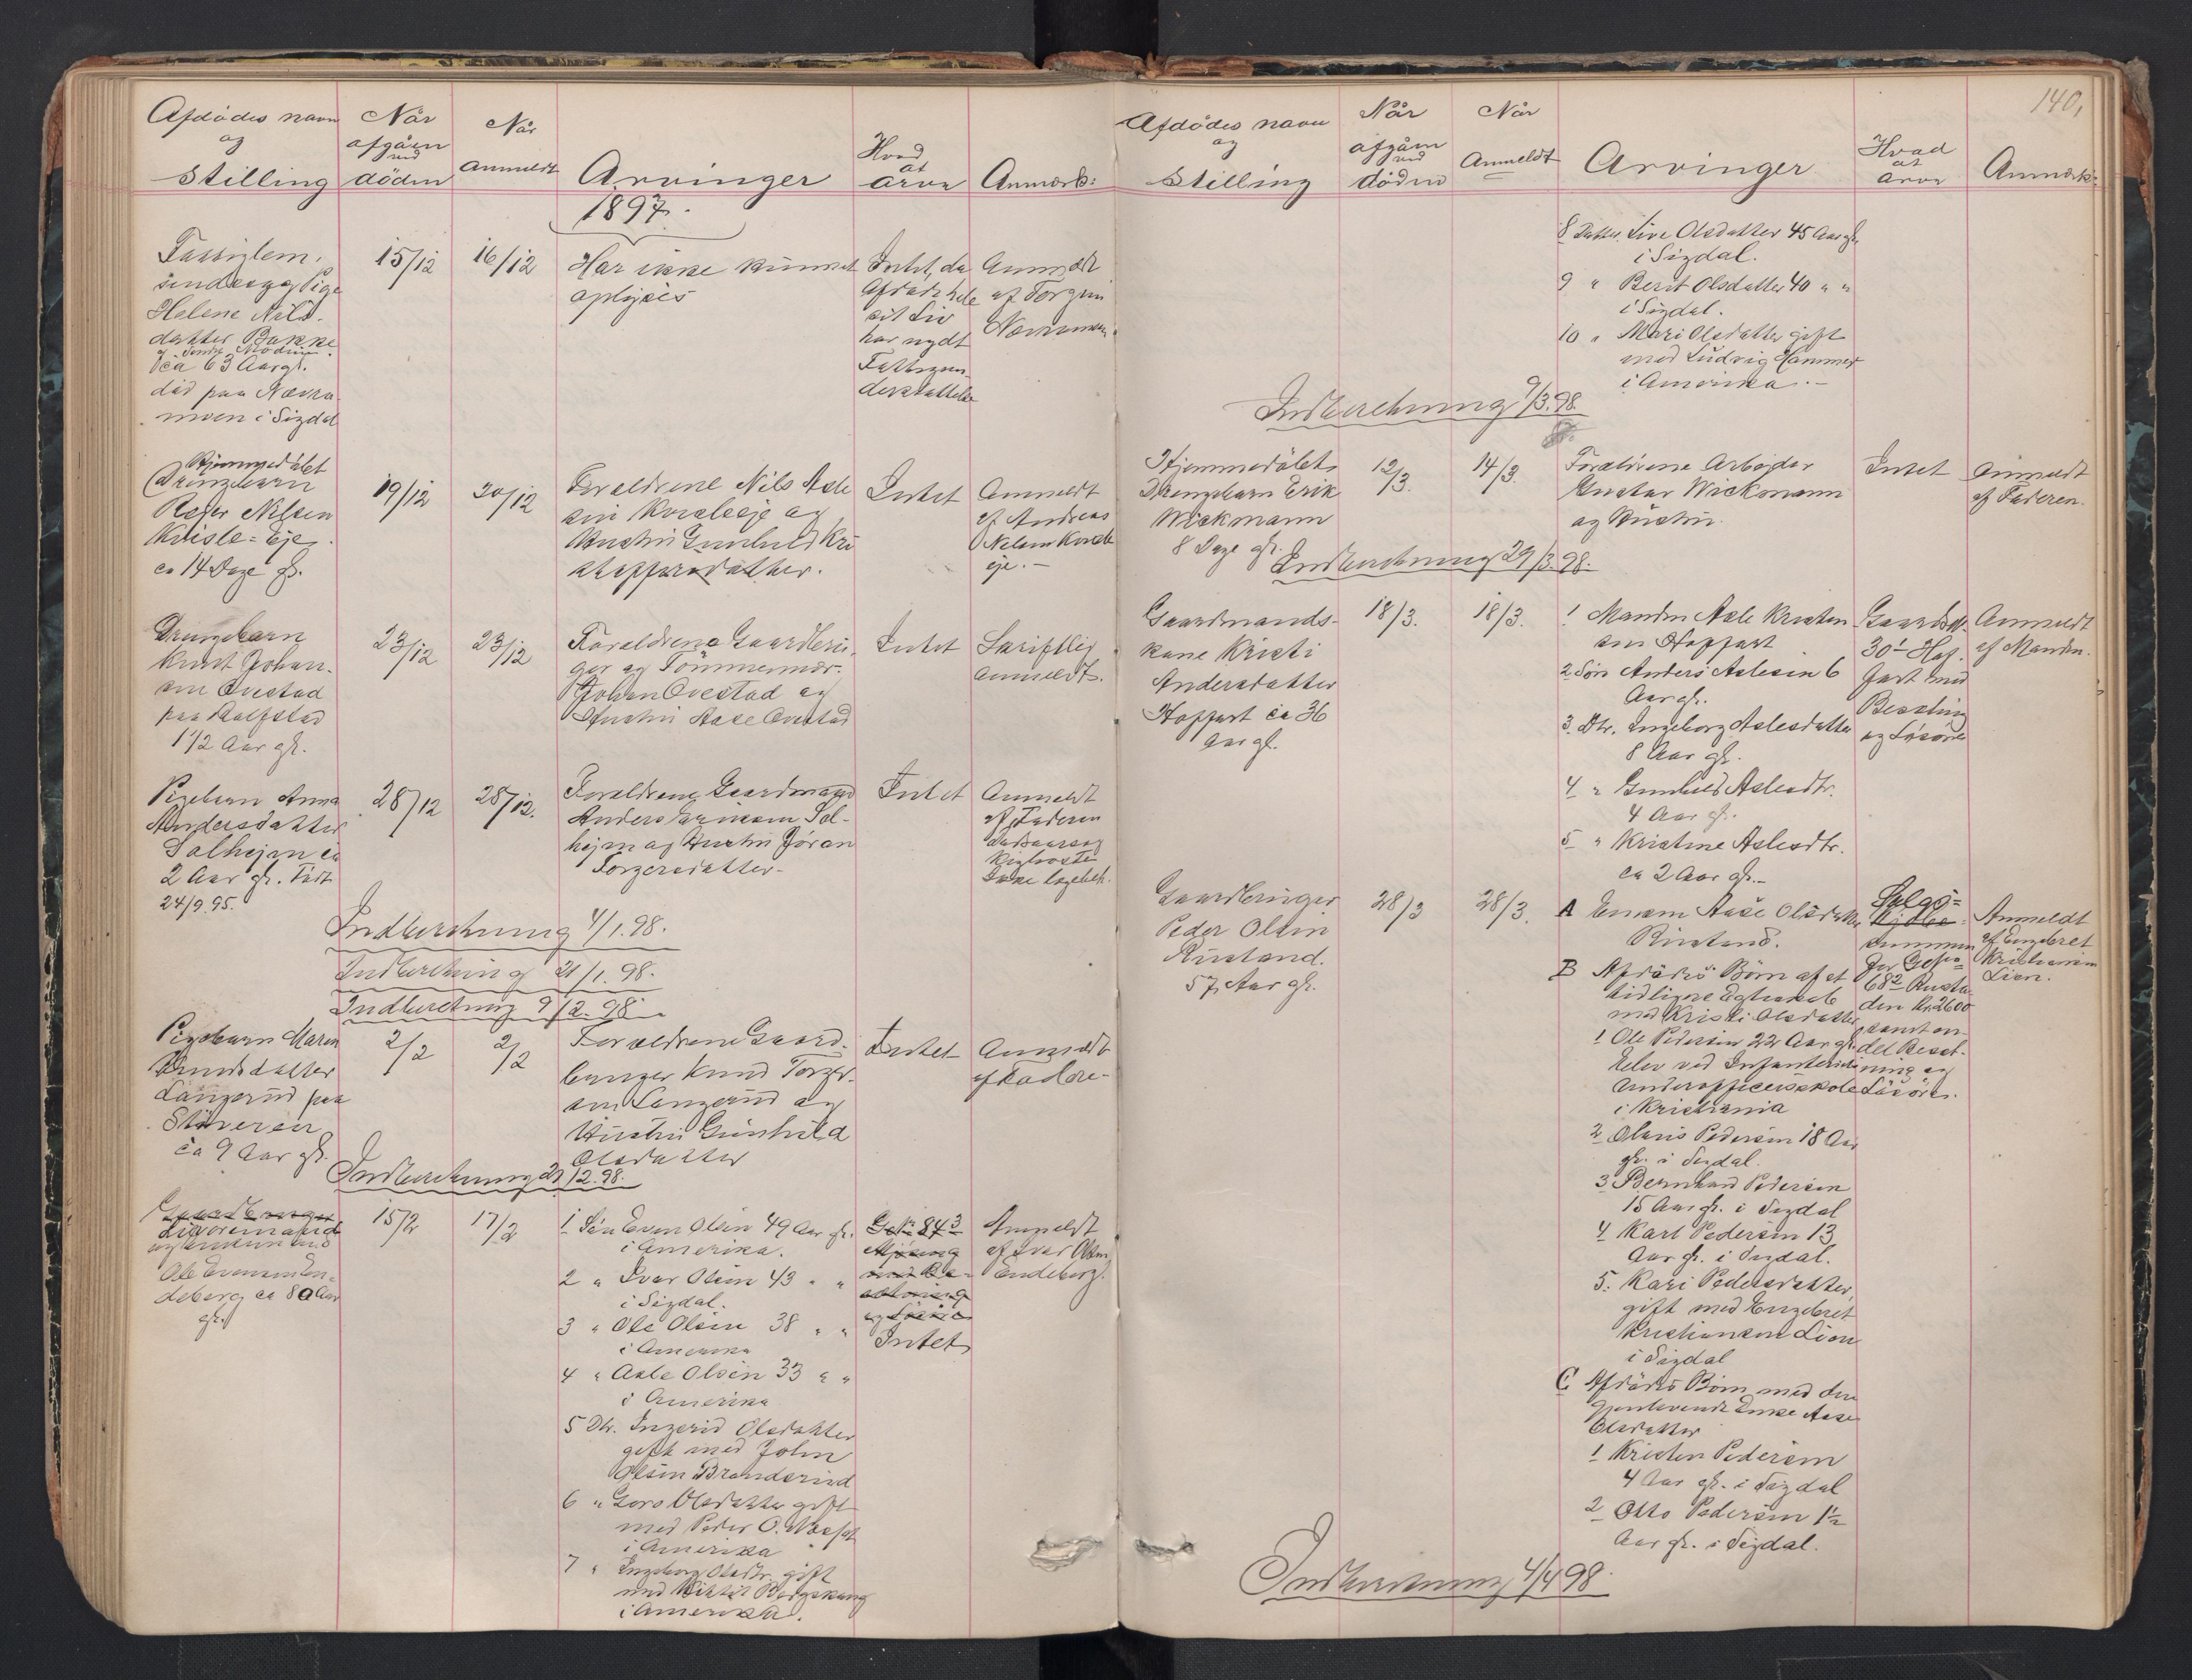 Afdødes navn
og
Stilling
Når
afgåen
ved
døden
Når
Anmeldt
Arvinger
Hvad
at
arve
Anmærk:
1897.
Helene Nils-
datter Bakke
ca 63 Aar gl.
død paa
moen i Sigdal
15/12
16/12
Har ikke kunnet
oplyses
Intet, da
Afdøde hele
sit Liv
har nydt
Fattigun-
derstøttelse
Anmeldt
af Torgrim
Hjemmedøbt
Drengebarn
Nilsen
ca 14 Dage gl.
19/12
20/12
Forældrene Nils Asle
sen og
Hustru Gunhild Kri
stoffersdatter.
Intet
Anmeldt
af Andreas
Nelsen
eje.
Drengebarn
Knut Johan-
sen Ovestad
paa Kolfstad
1 1/2 Aar gl.
23/12
23/12
Forældrene Gaardbru-
ger og Tömmermær-
Johan Ovestad og
Hustru Aase Ovestad
Intet
Skriftlig
anmeldt.
Pigebarn Anna
Andersdatter
Solhejm ca
2 Aar gl. Født
24/9.95.
28/12
28/12.
Forældrene Gaardmand
Anders Eriksen Sol-
hejm og Hustru Jöran
Torgersdatter.
Intet
Anmeldt
af Faderen
Dødsaarsag
Kighoste
Ikke lægebeh.
Indberetning 4/1.98.
Indberetning 21/1.98.
Indberetning 9/2.98.
Pigebarn Maren
Knudsdatter
Langerud paa
Stöveren
ca 9 Aar gl.
2/2
2/2
Forældrene Gaard-
bruger Knud Torger-
sen Langerud og
Hustru Gunhild
Olsdatter
Intet
Anmeldt
af Fadere-
Indberetning 21/2.98.
Gaardbruger
Livöremand
Ole Evensen En-
deberg ca 80 Aar
gl.
15/2
17/2
1 Sön Even Olsen 49 Aar gl.
i Amerika.
2 " Ivar Olsen 43 " "
i Sigdal.
3 " Ole Olsen 38 " "
i Amerika
4 " Asle Olsen 33 " "
i Amerika
5 Dtr. Ingerid Olsdatter
gift med John
Olsen Branderud
6 " Goro Olsdatter gift
med Peder O.
i Amerika
7 " Ingeborg Olsdtr. gift
med Kittil Bergskaug
i Amerika.
G.No 84 3
med Be-
sætning
og Lösöre
Intet
Anmeldt
af Ivar Olsen
Endeberg.
140,
Afdødes navn
og
Stilling
Når
afgåen
ved
döden
Når
Anmeldt
Arvinger
Hvad
at
arve
Anmærk:
8 Datter Live Olsdatter 45 Aar gl.
i Sigdal.
9 " Berit Olsdatter 40 " "
i Sigdal.
10 " Mari Olsdatter gift
med Ludvig Hammer
i Amerika.-
Indberetning 9/3.98.
Hjemmedöbt
Drengebarn Erik
Wickmann
8 Dage gl.
12/3.
14/3.
Forældrene Arbejder
Gustav Wickmann
og Hustru.
Intet
Anmeldt
af Faderen.
Indberetning 29/3.98.
Gaardmands-
kone Kristi
Andersdatter
Hoffart ca 36
Aar gl.
18/3.
18/3.
1 Manden Asle Kristen
sen Hoffart
2 Sön Anders Aslesen 6
Aar gl.
3. Dtr. Ingeborg Aslesdatter
8 Aar gl.
4 " Gunhild Aslesdtr.
4 Aar gl.
5 " Kristine Aslesdtr.
ca 2 Aar gl.-
30 1 Hof-
fart med
Besætning
og Lösöre
Anmeldt
af Manden.
Gaardbruger
Peder Olsen
Rustand.
57 Aar gl.
28/3
28/3.
A Enken Aase Olsdatter
Rustand.
B Afdödes Börn af et
tidligere Egteskab
med Kristi Olsdatter
1 Ole Pedersen 22 Aar gl.
Elev ved Infanteriets
Underofficersskole
i Kristiania
2 Olaus Pedersen 18 Aar
gl. i Sigdal.
3 Bernhard Pedersen
15 Aar gl. i Sigdal
4 Karl Pedersen 13
Aar gl. i Sigdal.
5. Kari Pedersdatter,
gift med Engebret
Kristiansen Lien
i Sigdal
C. Afdödes Börn med den
gjenlevende Enke Aase
Olsdatter
1 Kristen Pedersen
4 Aar gl. i Sigdal
2 Otto Pedersen 1 1/2
Aar gl. i Sigdal.
Salgs=
Kjöbe-
summen
for G.No
68 2 Rusta-
den kr. 2600
samt en
del Besæt-
ning og
Lösöre.
Anmeldt
af Engebret
Kristiansen
Lien.
Indberetning 4/4 98.